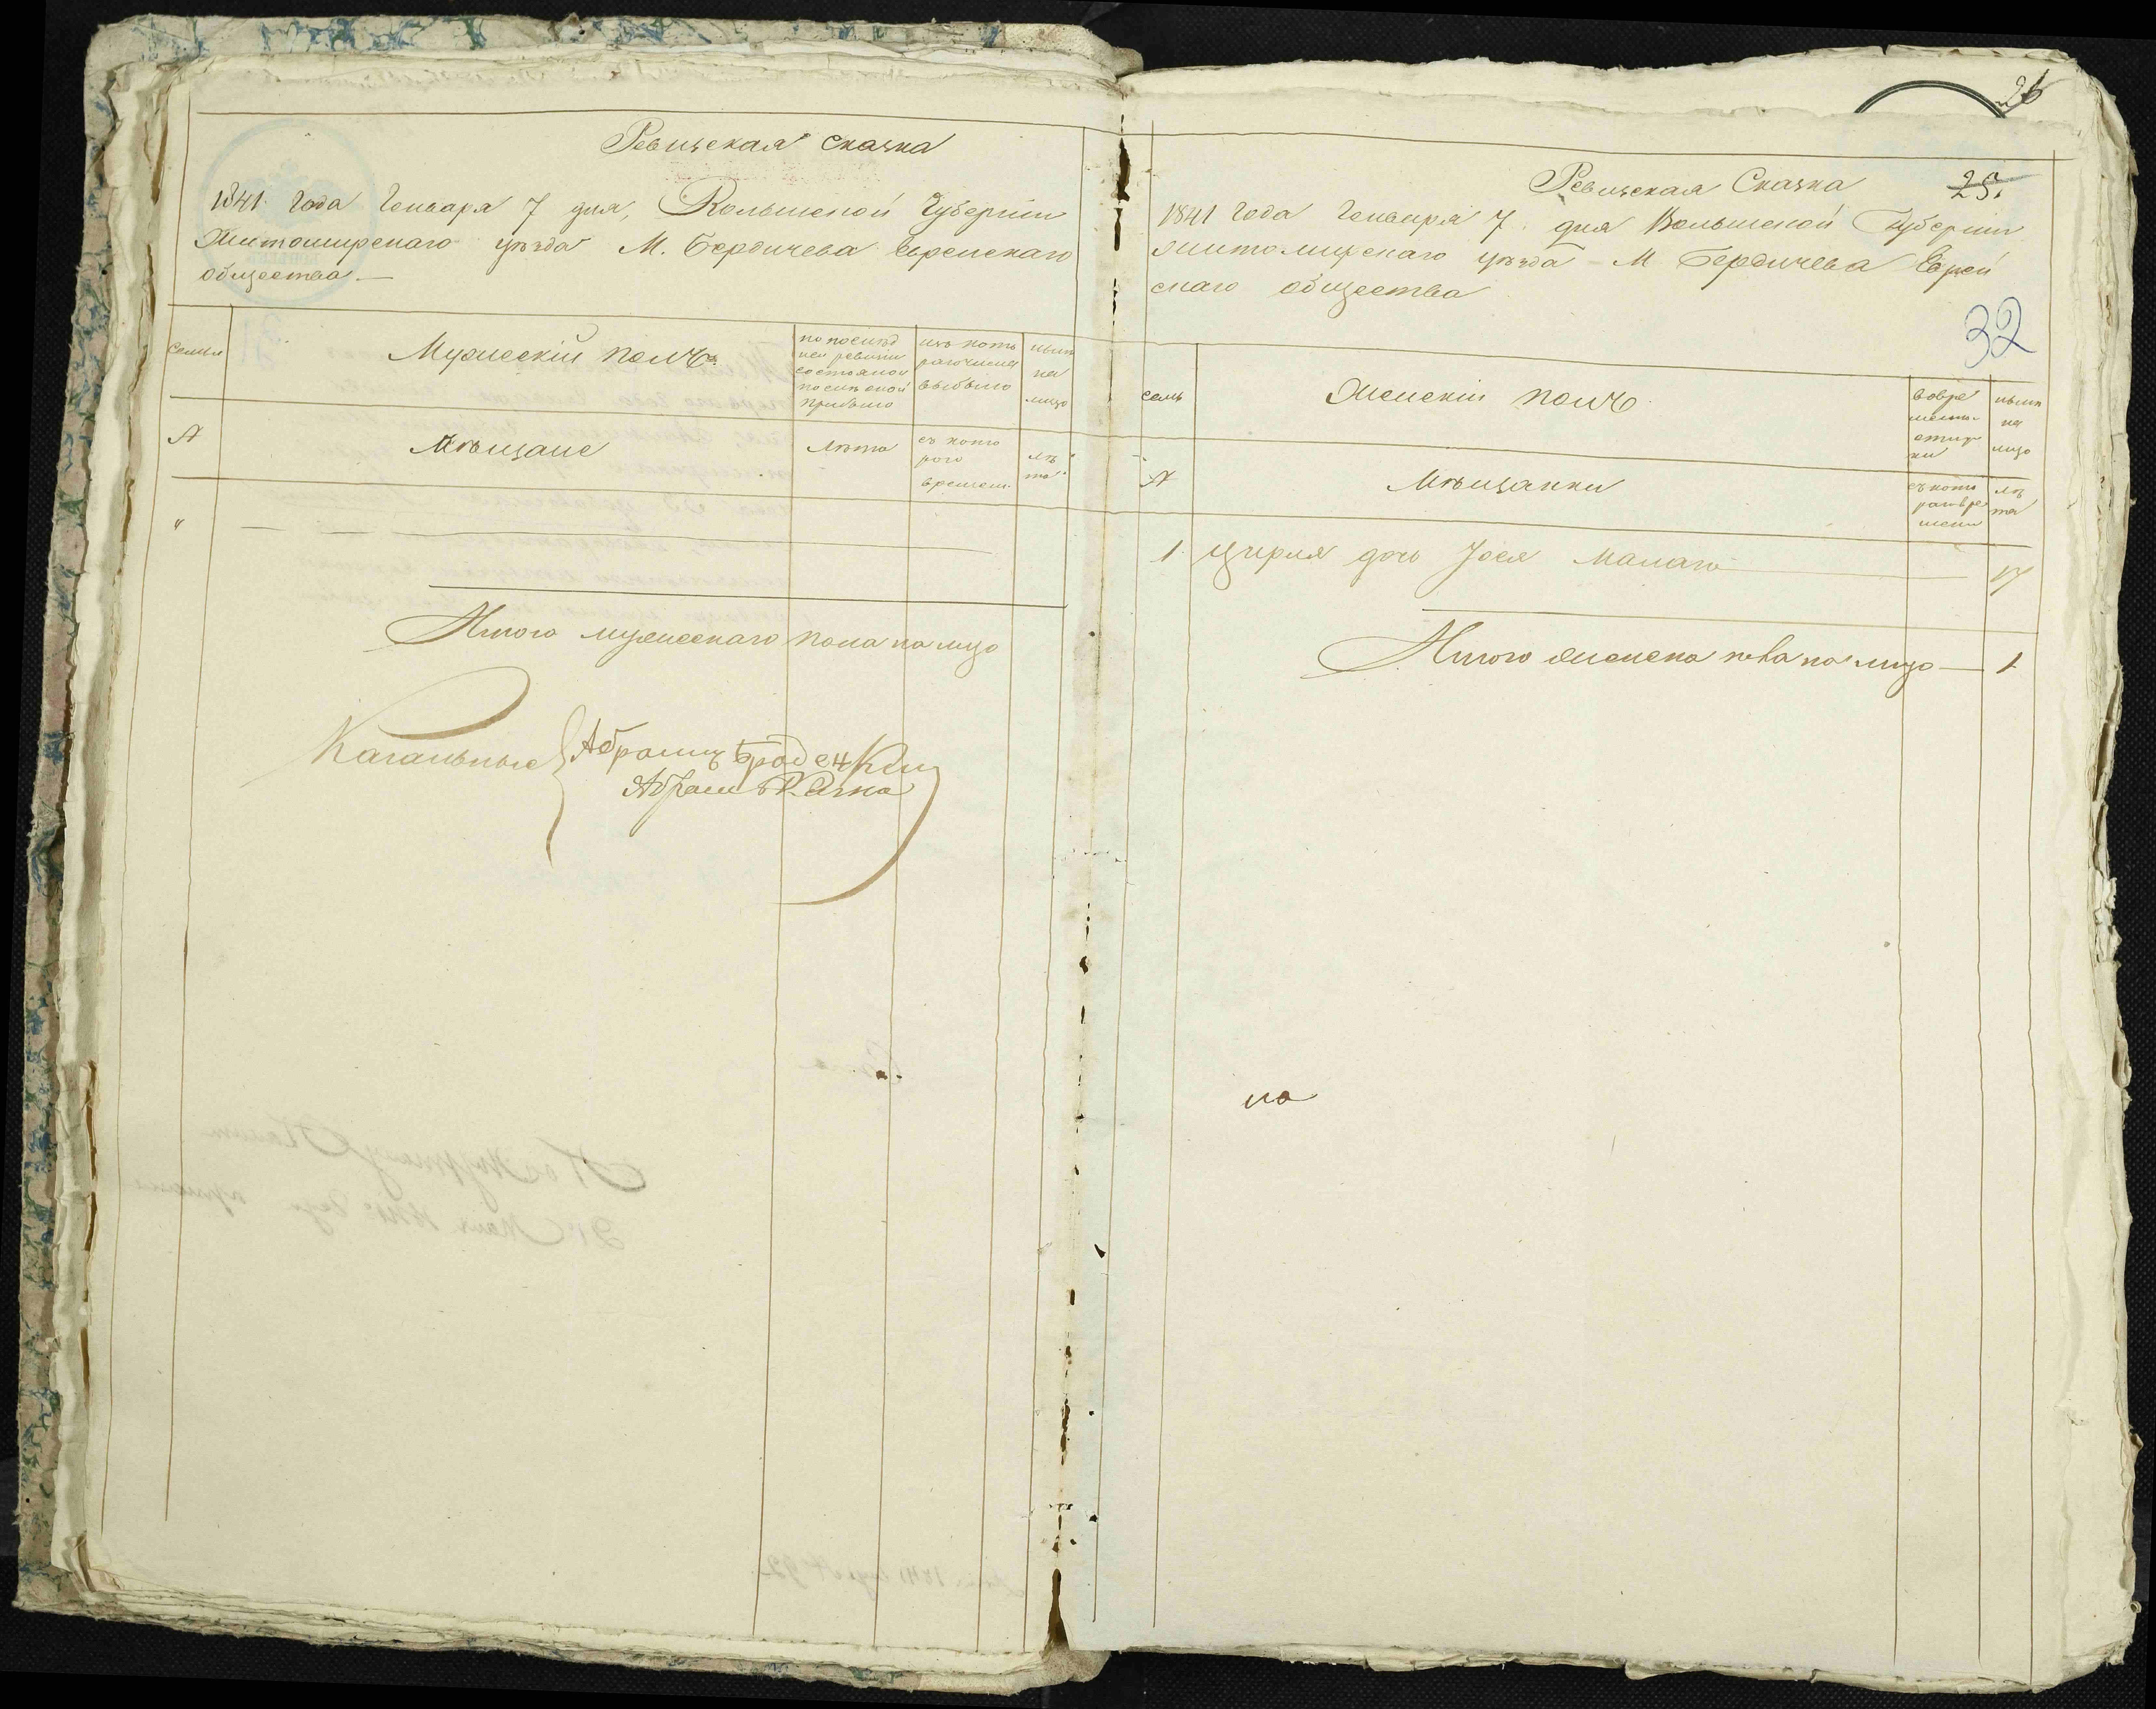 Ревизская сказка
1841 года Генваря 7 дня, Волынской Губернии
Житомирскаго уѣзда М. Бердичева Еврейскаго
общества —
семья
Мужескій полъ
по послѣд
ней ревизіи
состояло и
послѣ оной
прибыло
изъ кото
раго числа
выбыло
нынѣ
на
лицо
№
Мѣщане
Лѣта
съ кото
раго
времени
лѣ
та
"
Итого мужескаго пола на лицо
Кагальные
Абрамъ Бродецкій
Абрамъ
26
Ревизская Сказка
25.
1841 года Генваря 7 дня Волынской Губернии
Житомирскаго уѣзда М Бердичева Еврей
скаго общества
32
семь
Женскій полъ
во вре
менн.
отлуч
ки
нынѣ
на
лицо
№
Мѣщанки
съ кото
раго вре
мени
лѣ
та
1. Цирля дочь Іося Малаго — 17
Итого женска пола на лицо — 1
на